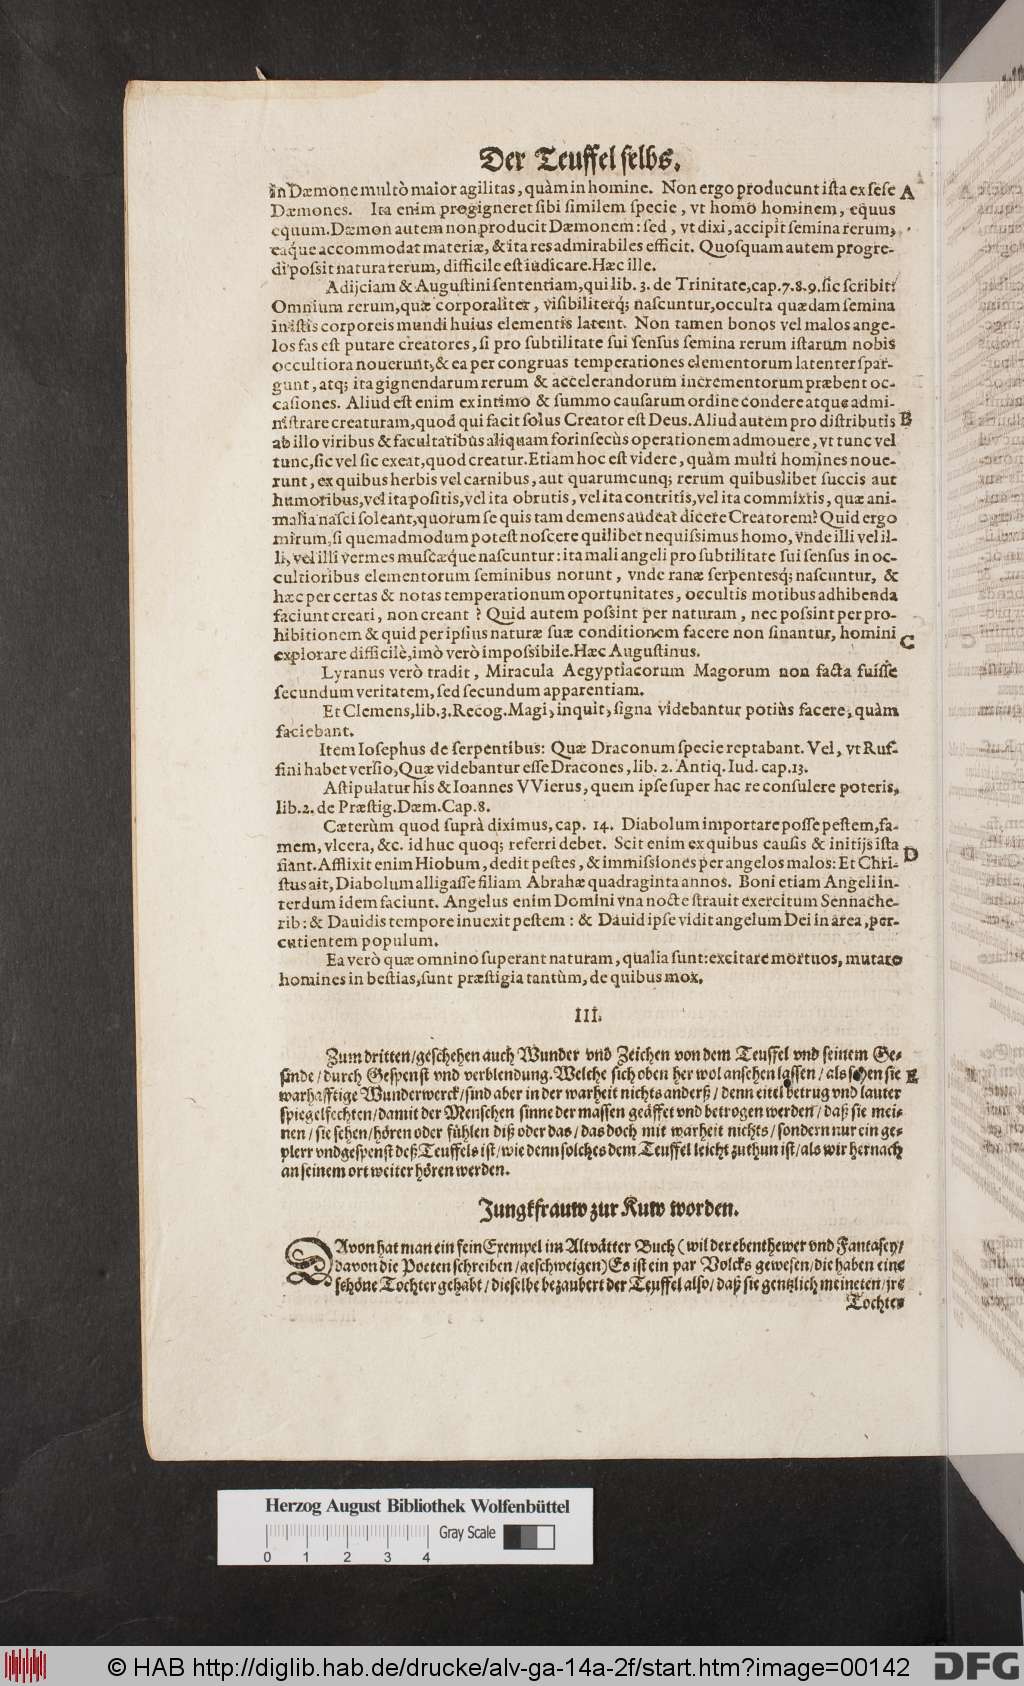 Der Teuffel selbs.
in Dæmone multò maior agilitas, quàm in homine. Non ergo producunt ista ex sese A
Dæmones. Ita enim progigneret sibi similem specie, vt homo hominem, equus
equum. Dæmon autem non producit Dæmonem: sed, vt dixi, accipit semina rerum,
eaque accommodat materiæ, & ita res admirabiles efficit. Quosquam autem progre-
di possit natura rerum, difficile est iudicare. Hæc ille.
Adijciam & Augustini sententiam, qui lib. 3. de Trinitate, cap. 7. 8. 9. sic scribit:
Omnium rerum, quæ corporaliter, visibiliterq́; nascuntur, occulta quædam semina
in istis corporeis mundi huius elementis latent. Non tamen bonos vel malos ange-
los fas est putare creatores, si pro subtilitate sui sensus semina rerum istarum nobis
occultiora nouerunt, & ea per congruas temperationes elementorum latenter spar-
gunt, atq; ita gignendarum rerum & accelerandorum incrementorum præbent oc-
casiones. Aliud est enim ex intimo & summo causarum ordine condere atque admi-
nistrare creaturam, quod qui facit solus Creator est Deus. Aliud autem pro distributis B
ab illo viribus & facultatibus aliquam forinsecùs operationem admouere, vt tunc vel
tunc, sic vel sic exeat, quod creatur. Etiam hoc est videre, quàm multi homines noue-
runt, ex quibus herbis vel carnibus, aut quarumcunq; rerum quibuslibet succis aut
humoribus, vel ita positis, vel ita obrutis, vel ita contritis, vel ita commixtis, quæ ani-
malia nasci soleant, quorum se quis tam demens audeat dicere Creatorem? Quid ergo
mirum, si quemadmodum potest noscere quilibet nequissimus homo, vnde illi vel il-
li, vel illi vermes muscæque nascuntur: ita mali angeli pro subtilitate sui sensus in oc-
cultioribus elementorum seminibus norunt, vnde ranæ serpentesq́; nascuntur, &
hæc per certas & notas temperationum oportunitates, occultis motibus adhibenda
faciunt creari, non creant? Quid autem possint per naturam, nec possint per pro-
hibitionem & quid per ipsius naturæ suæ conditionem facere non sinantur, homini C
explorare difficile, imò verò impossibile. Hæc Augustinus.
Lyranus verò tradit, Miracula Aegyptiacorum Magorum non facta fuisse
secundum veritatem, sed secundum apparentiam.
Et Clemens, lib. 3. Recog. Magi, inquit, signa videbantur potiùs facere, quàm
faciebant.
Item Iosephus de serpentibus: Quæ Draconum specie reptabant. Vel, vt Ruf-
fini habet versio, Quæ videbantur esse Dracones, lib. 2. Antiq. Iud. cap. 13.
Astipulatur his & Ioannes VVierus, quem ipse super hac re consulere poteris,
lib. 2. de Præstig. Dæm. Cap. 8.
Cæterùm quod suprà diximus, cap. 14. Diabolum importare posse pestem, fa-
mem, vlcera, &c. id huc quoq; referri debet. Scit enim ex quibus causis & initijs ista D
fiant. Afflixit enim Hiobum, dedit pestes, & immissiones per angelos malos: Et Chri-
stus ait, Diabolum alligasse filiam Abrahæ quadraginta annos. Boni etiam Angeli in-
terdum idem faciunt. Angelus enim Domini vna nocte strauit exercitum Sennache-
rib: & Dauidis tempore inuexit pestem: & Dauid ipse vidit angelum Dei in area, per-
cutientem populum.
Ea verò quæ omnino superant naturam, qualia sunt: excitare mortuos, mutare
homines in bestias, sunt præstigia tantùm, de quibus mox.
III.
Zum dritten/ geschehen auch Wunder vnd Zeichen von dem Teuffel vnd seinem Ge-
sinde/ durch Gespenst vnd verblendung. Welche sich oben her wol ansehen lassen/ als sehen sie E
warhafftige Wunderwerck/ sind aber in der warheit nichts anderß/ denn eitel betrug vnd lauter
spiegelfechten/ damit der Menschen sinne der massen geäffet vnd betrogen werden/ daß sie mei-
nen/ sie sehen/ hören oder fühlen diß oder das/ das doch mit warheit nichts/ sondern nur ein ge-
plerr vnd gespenst deß Teuffels ist/ wie denn solches dem Teuffel leicht zuthun ist/ als wir hernach
an seinem ort weiter hören werden.
Jungkfrauw zur Kuw worden.
DAvon hat man ein fein Exempel im Altvätter Buch (wil der ebenthewer vnd Fantasey/
davon die Poeten schreiben/ geschweigen) Es ist ein par Volcks gewesen/ die haben eine
schöne Tochter gehabt/ dieselbe bezaubert der Teuffel also/ daß sie gentzlich meineten/ jre
Tochter
Herzog August Bibliothek Wolfenbüttel
Gray Scale
0 1 2 3 4
© HAB http://diglib.hab.de/drucke/alv-ga-14a-2f/start.htm?image=00142
DFG